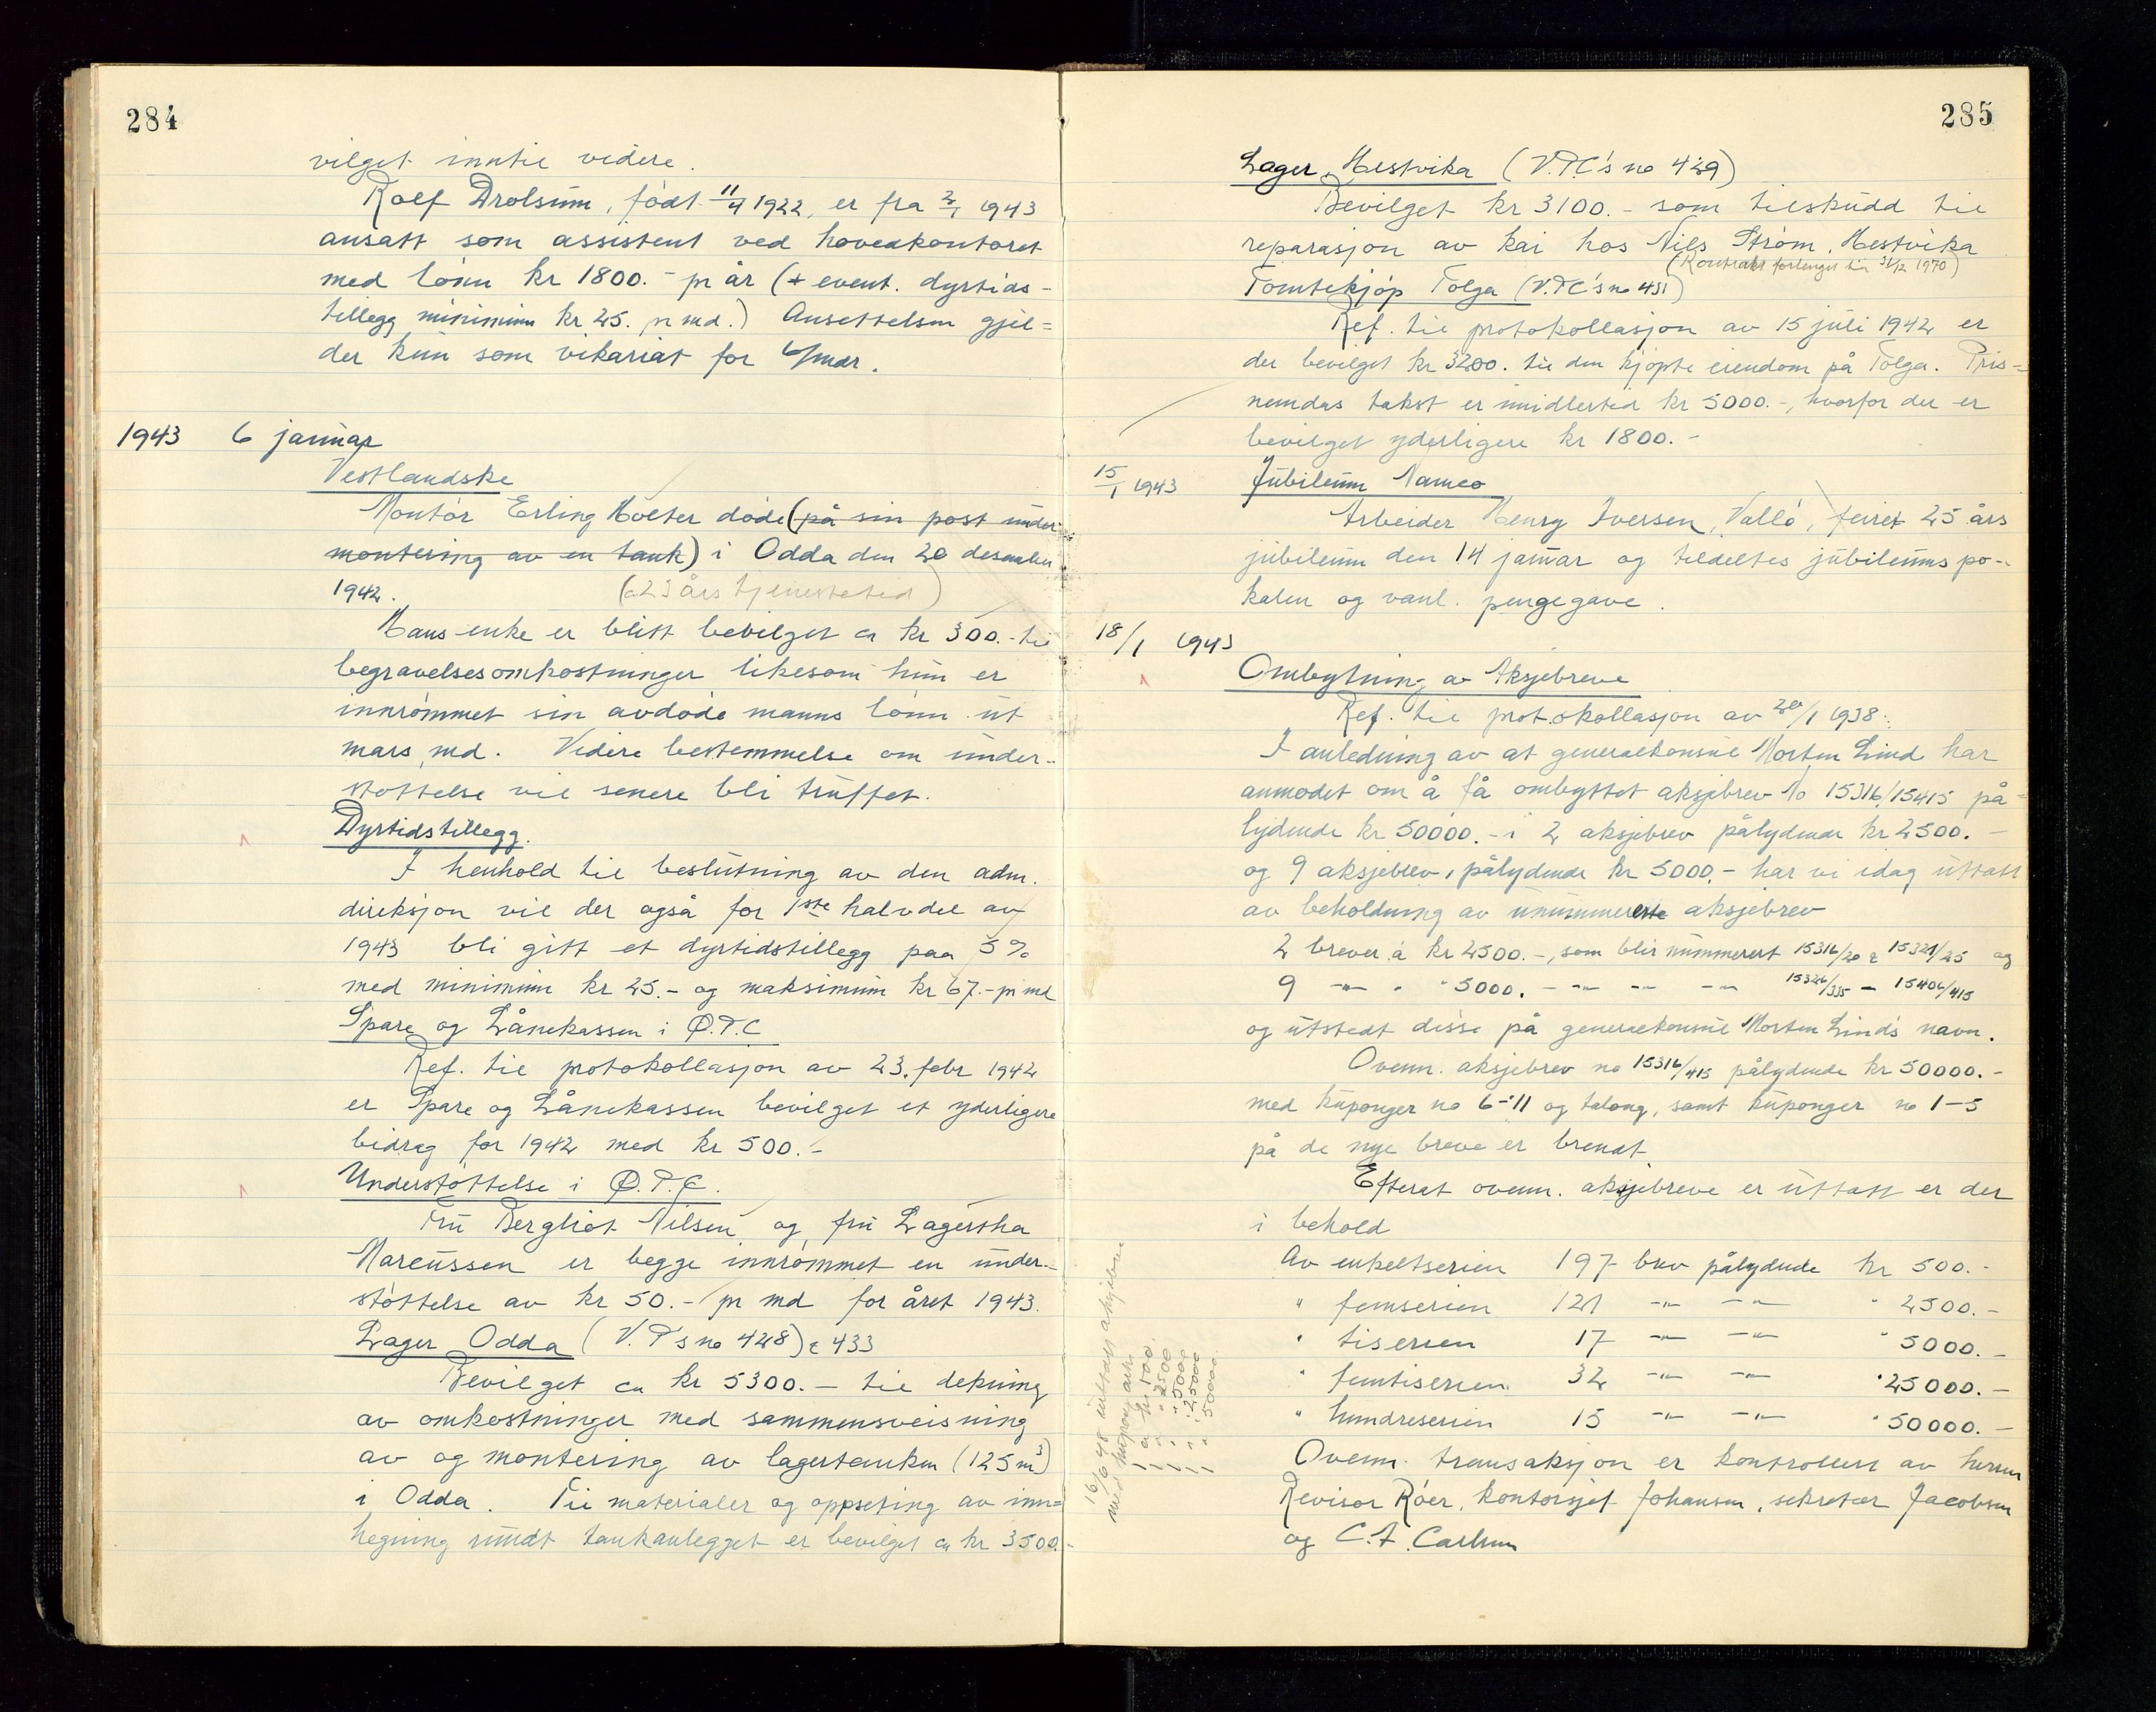 284
vilget inntil videre.
Rolf Drolsum, født 11/4 1922, er fra 2/1 1943
ansatt som assistent ved hovedkontoret
med lønn kr 1800.- pr år (+ event. dyrtids-
tillegg minimum kr 25. pr md.) Ansettelsen gjel=
der kun som vikariat for 6/mdr.
1943 6 januar
Vestlandske
Montør Erling Holter døde (på sin post under
montering av en tank) i Odda den 20 desember
1942. (23 års tjenestetid)
Hans enke er blitt bevilget ca kr 300.- til
begravelsesomkostninger likesom hun er
innrømmet sin avdøde manns lønn ut
mars md. Videre bestemmelse om under-
støttelse vil senere bli truffet.
Dyrtidstillegg.
I henhold til beslutning av den adm.
direksjon vil der også for 1ste halvdel av
1943 bli gitt et dyrtidstillegg paa 5%
med minimum kr 25.- og maksimum kr 67.- pr md
Spare og Lånekassen i Ø.P.C
Ref. til protokollasjon av 23. febr 1942
er Spare og Lånekassen bevilget et yderligere
bidrag for 1942 med kr 500.-
Understøttelse i Ø.P.C.
Fru Bergliot Nilsen og fru Lagertha
Marcussen er begge innrømmet en under-
støttelse av kr 50.- pr md for året 1943.
Lager Odda (V.P's no 428) & 433
Bevilget ca kr 5300.- til dekning
av omkostninger med sammensveisning
av og montering av lagertanken (125 m3)
i Odda. Til materialer og oppsetting av inn=
hegning rundt tankanlegget er bevilget ca kr 3500.-
285
Lager, Hestvika (V.P.C's no 429)
Bevilget kr 3100.- som tilskudd til
reparasjon av kai hos Nils Strøm, Hestvika
(Kontrakt forlenget til 31/12 1970)
Tomtekjøp Tolga (V.P.C's no 431)
Ref. til protokollasjon av 15 juli 1942 er
der bevilget kr 3200. til den kjøpte eiendom på Tolga. Pris=
nemdas takst er imidlertid kr 5000.-, hvorfor der er
bevilget yderligere kr 1800.-
15/1 1943 Jubileum Nameo
Arbeider Henry Iversen, Vallø, feiret 25 års
jubileum den 14 januar og tildeltes jubileumspo-
kalen og vanl. pengegave.
18/1 1943
Ombytning av Aksjebreve
Ref. til protokollasjon av 20/1 1938:
I anledning av at generalkonsul Morten Lind har
anmodet om å få ombyttet aksjebrev No 15316/15415 på=
lydende kr 50000.- i 2 aksjebrev pålydende kr 2500.-
og 9 aksjebrev, pålydende kr 5000.- har vi idag uttatt
av beholdning av unummererte aksjebrev
2 brever à kr 2500.-, som blir nummerert 15316/20 & 15321/25 og
9 -"- " " 5000. - -"- -"- -"- 15326/335 - 15406/415
og utstedt disse på generalkonsul Morten Lind's navn.
Ovenn. aksjebrev no 15316/415 pålydende kr 50000.-
med kuponger no 6-11 og talong, samt kuponger no 1-5
på de nye breve er brendt
Efterat ovenn. aksjebreve er uttatt er der
i behold
Av enkeltserien 197 brev pålydende kr 500.-
" femserien 121 -"- -"- " 2500.-
" tiserien 17 -"- -"- " 5000.-
" femtiserien 32 -"- -"- " 25000.-
" hundreserien 15 -"- -"- " 50000.-
Ovenn. transaksjon er kontrollert av herrer
Revisor Röer, kontorsjef Johansen, sekretær Jacobsen
og C.A. Carlsen
16/6 48 uttatt aksjebrev
med kupongark
1 a kr 500.
1 " " 2500
1 " " 5000
1 " " 25000
1 " " 50000.